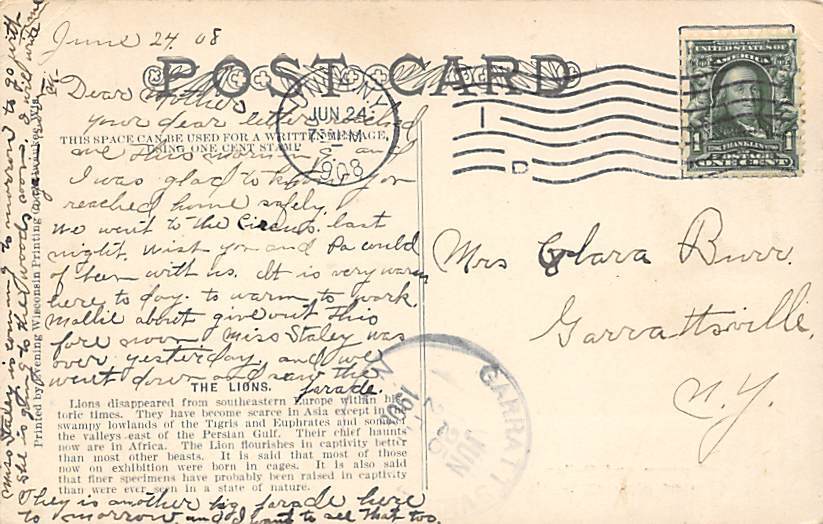 June 24. 08
POST CARD
Dear Mother
your dear letter reached
THIS SPACE CAN BE USED FOR A WRITTEN MESSAGE,
USING ONE CENT STAMP
me this morning and
I was glad to know you
reached home safely.
We went to the Circus. last
night. wish you and Pa could
of been with us. It is very warm
here to day. to warm to work.
Mallie about give out this
fore noon. Miss Staley was
over yesterday, and we
went down and saw the
parade.
THE LIONS.
Lions disappeared from southeastern Europe within his-
toric times. They have become scarce in Asia except in
swampy lowlands of the Tigris and Euphrates and some of
the valleys east of the Persian Gulf. Their chief haunts
now are in Africa. The Lion flourishes in captivity better
than most other beasts. It is said that most of those
now on exhibition were born in cages. It is also said
that finer specimens have probably been raised in captivity
than were ever seen in a state of nature.
They is another big parade here
to morrow and I want to see that too.
Miss Staley is coming to morrow to go with
She is going to the woods soon. I will write
Printed by Evening Wisconsin Printing Co., Milwaukee, Wis.
JUN 24
1908
D
SERIES 1902
UNITED STATES OF
AMERICA
FRANKLIN
1 1
POSTAGE
ONE CENT
Mrs Clara Burr.
Garrattsville,
N.Y.
GARRATTSV
JUN
25
1908
N